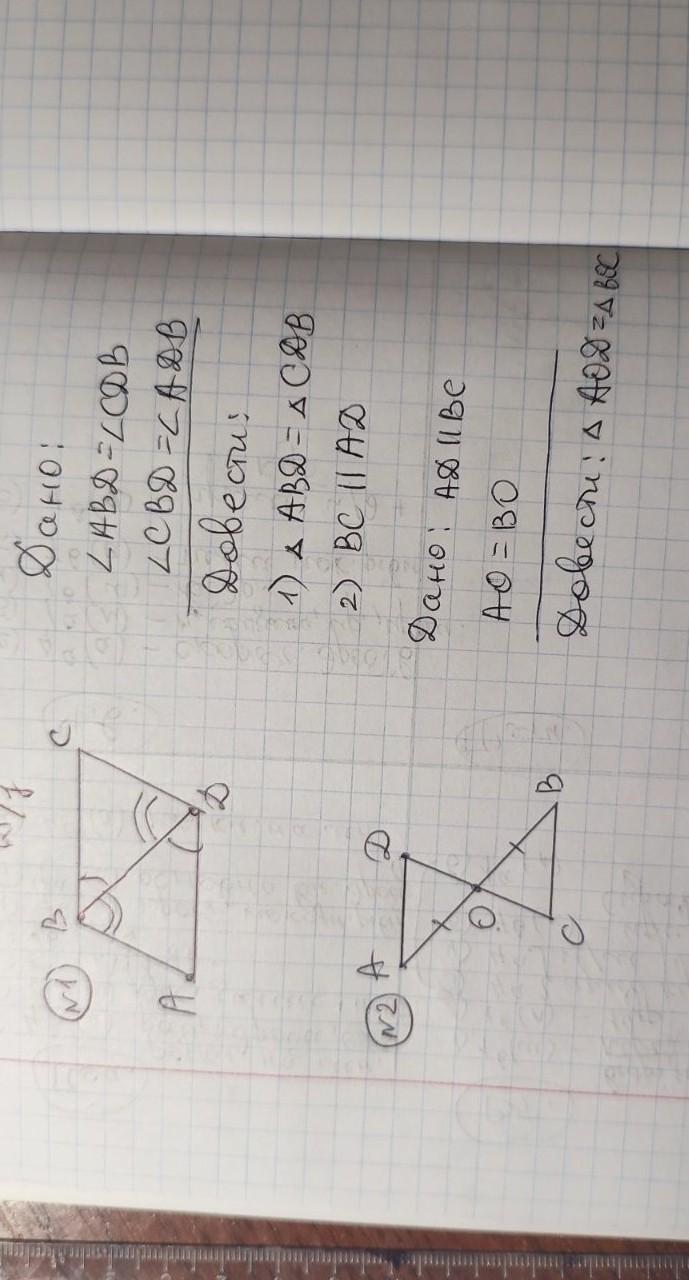 №1
B
C
A
D
Дано:
∠ABD=∠CDB
∠CBD=∠ADB
Довести:
1) △ABD=△CDB
2) BC||AD
№2
A
D
O
C
B
Дано: AD||BC
AO=BO
Довести: △AOD=△BOC